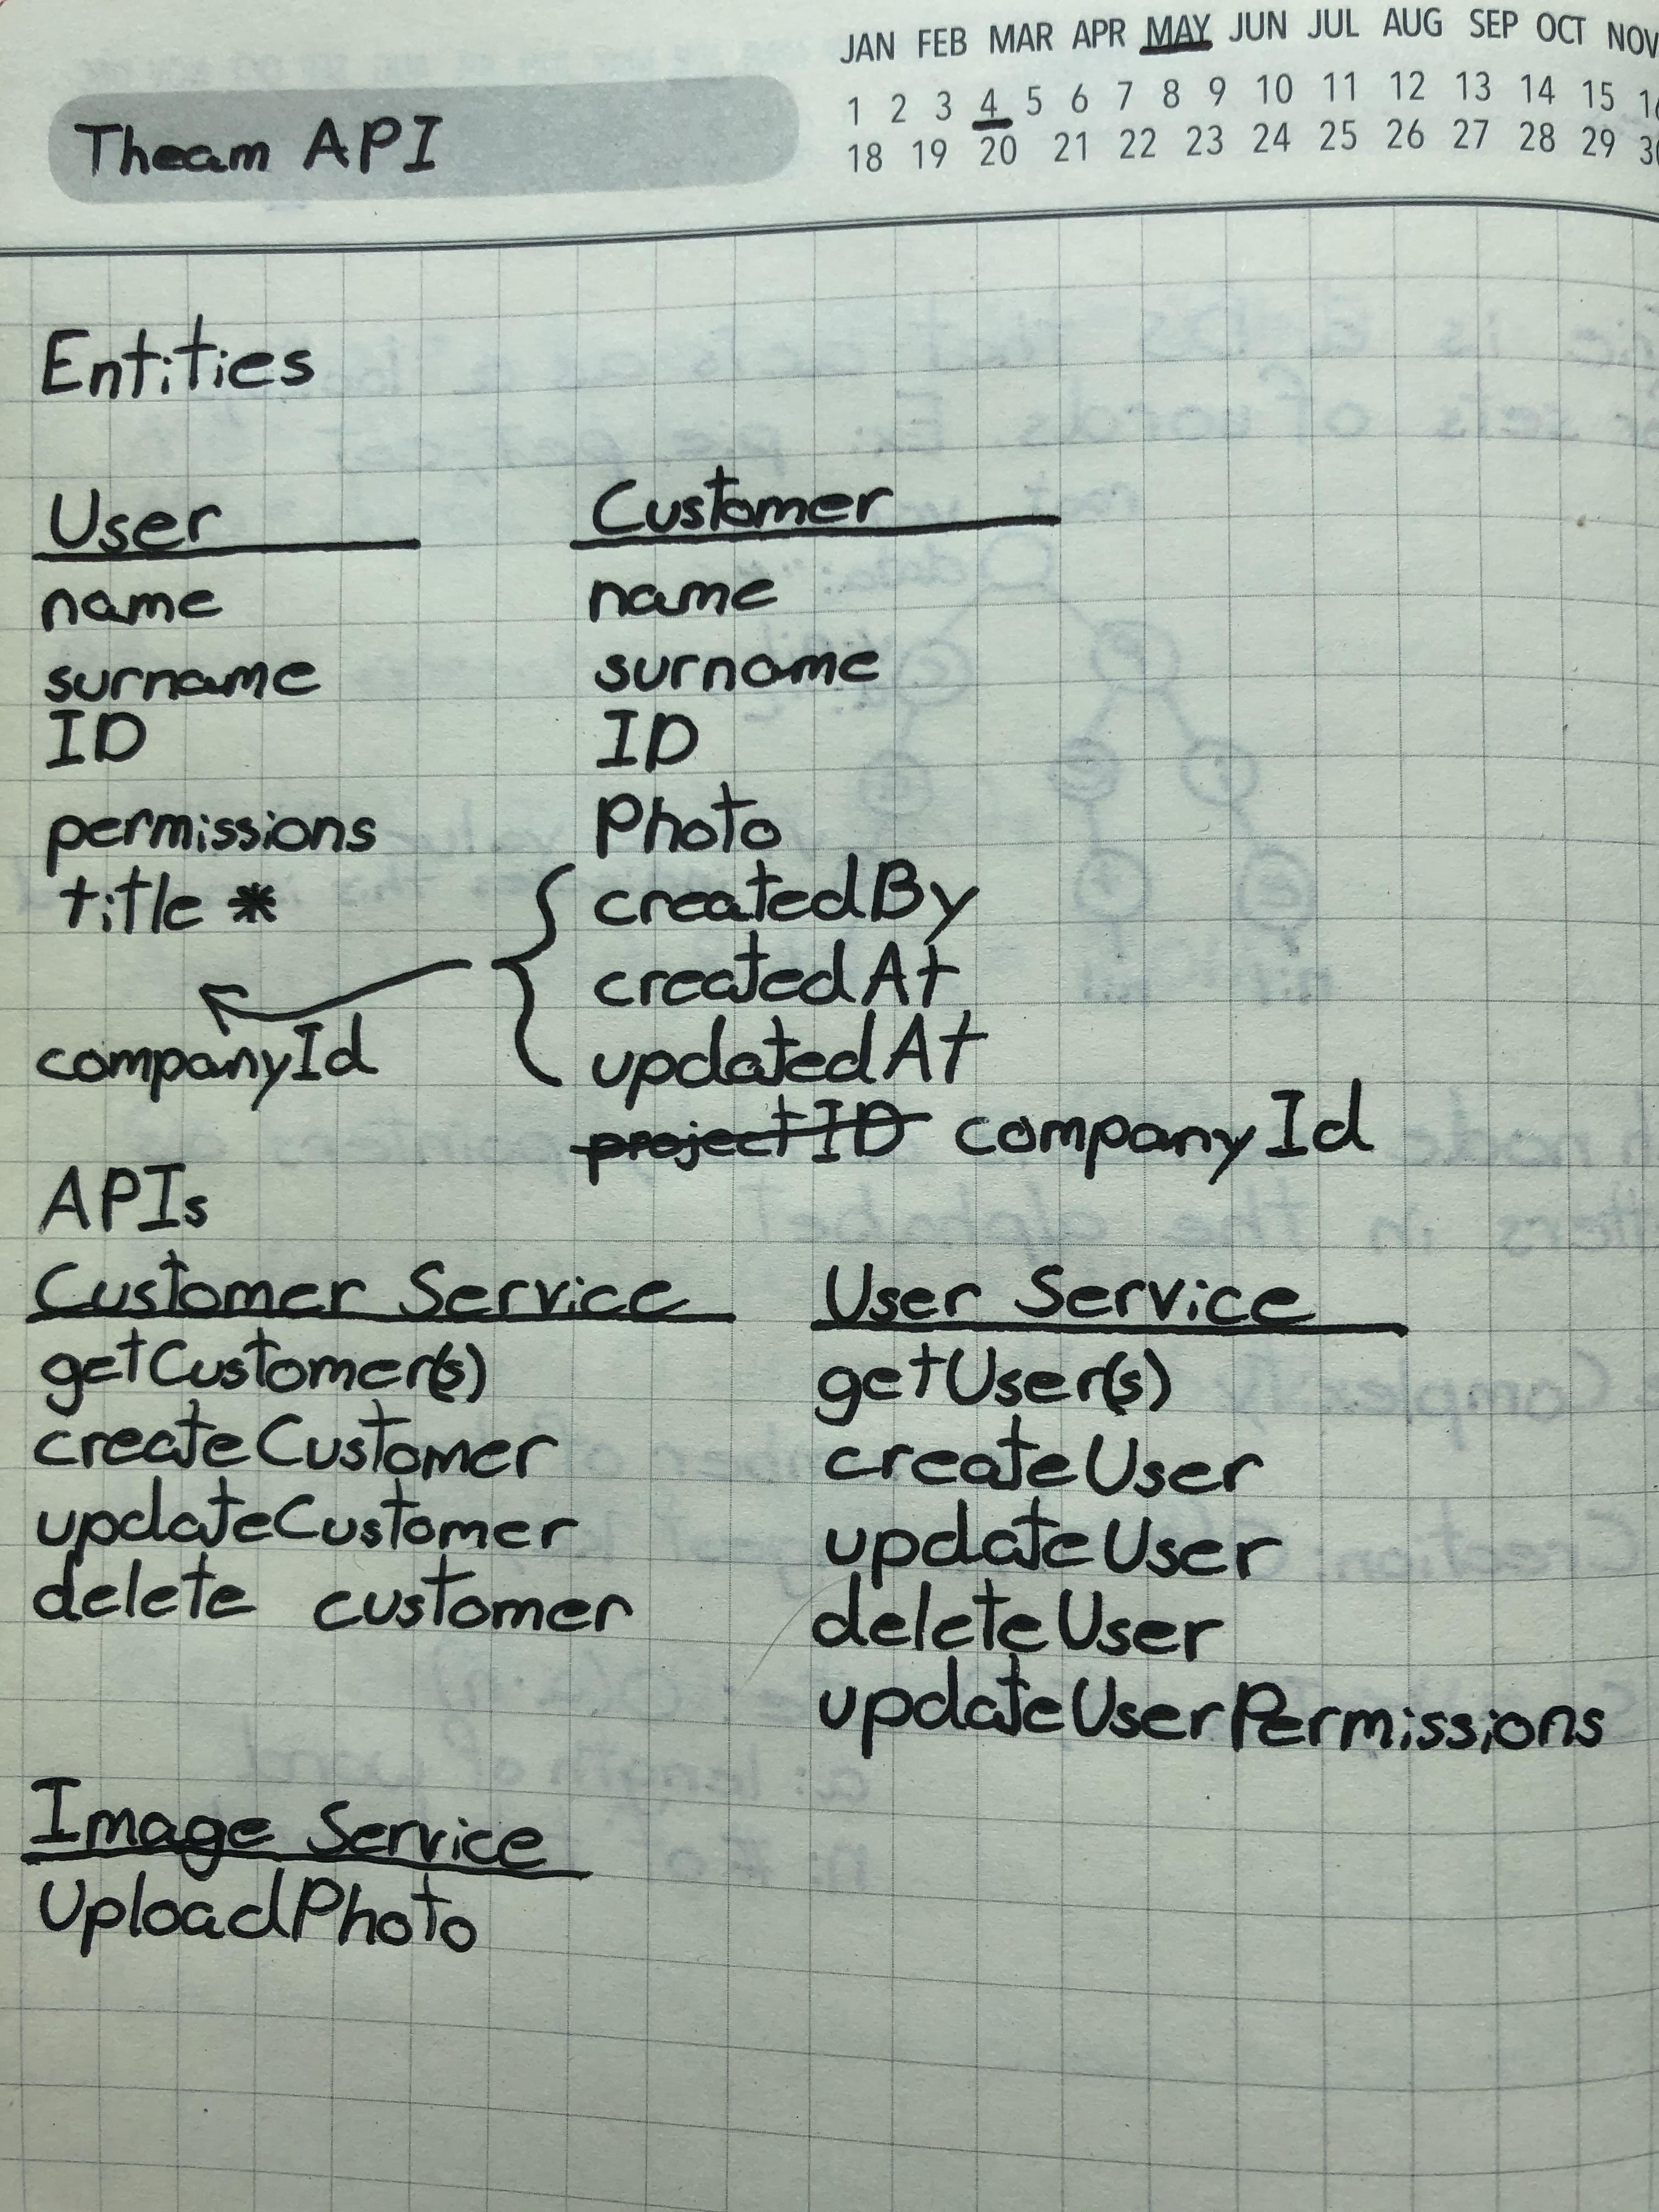 JAN FEB MAR APR MAY JUN JUL AUG SEP OCT NOV
1 2 3 4 5 6 7 8 9 10 11 12 13 14 15
18 19 20 21 22 23 24 25 26 27 28 29
Theam API
Entities
User
name
surname
ID
permissions
title *
companyId
Customer
name
surname
ID
Photo
createdBy
createdAt
updatedAt
projectID companyId
APIs
Customer Service
getCustomer(s)
createCustomer
updateCustomer
delete customer
User Service
getUser(s)
createUser
updateUser
deleteUser
updateUserPermissions
Image Service
UploadPhoto